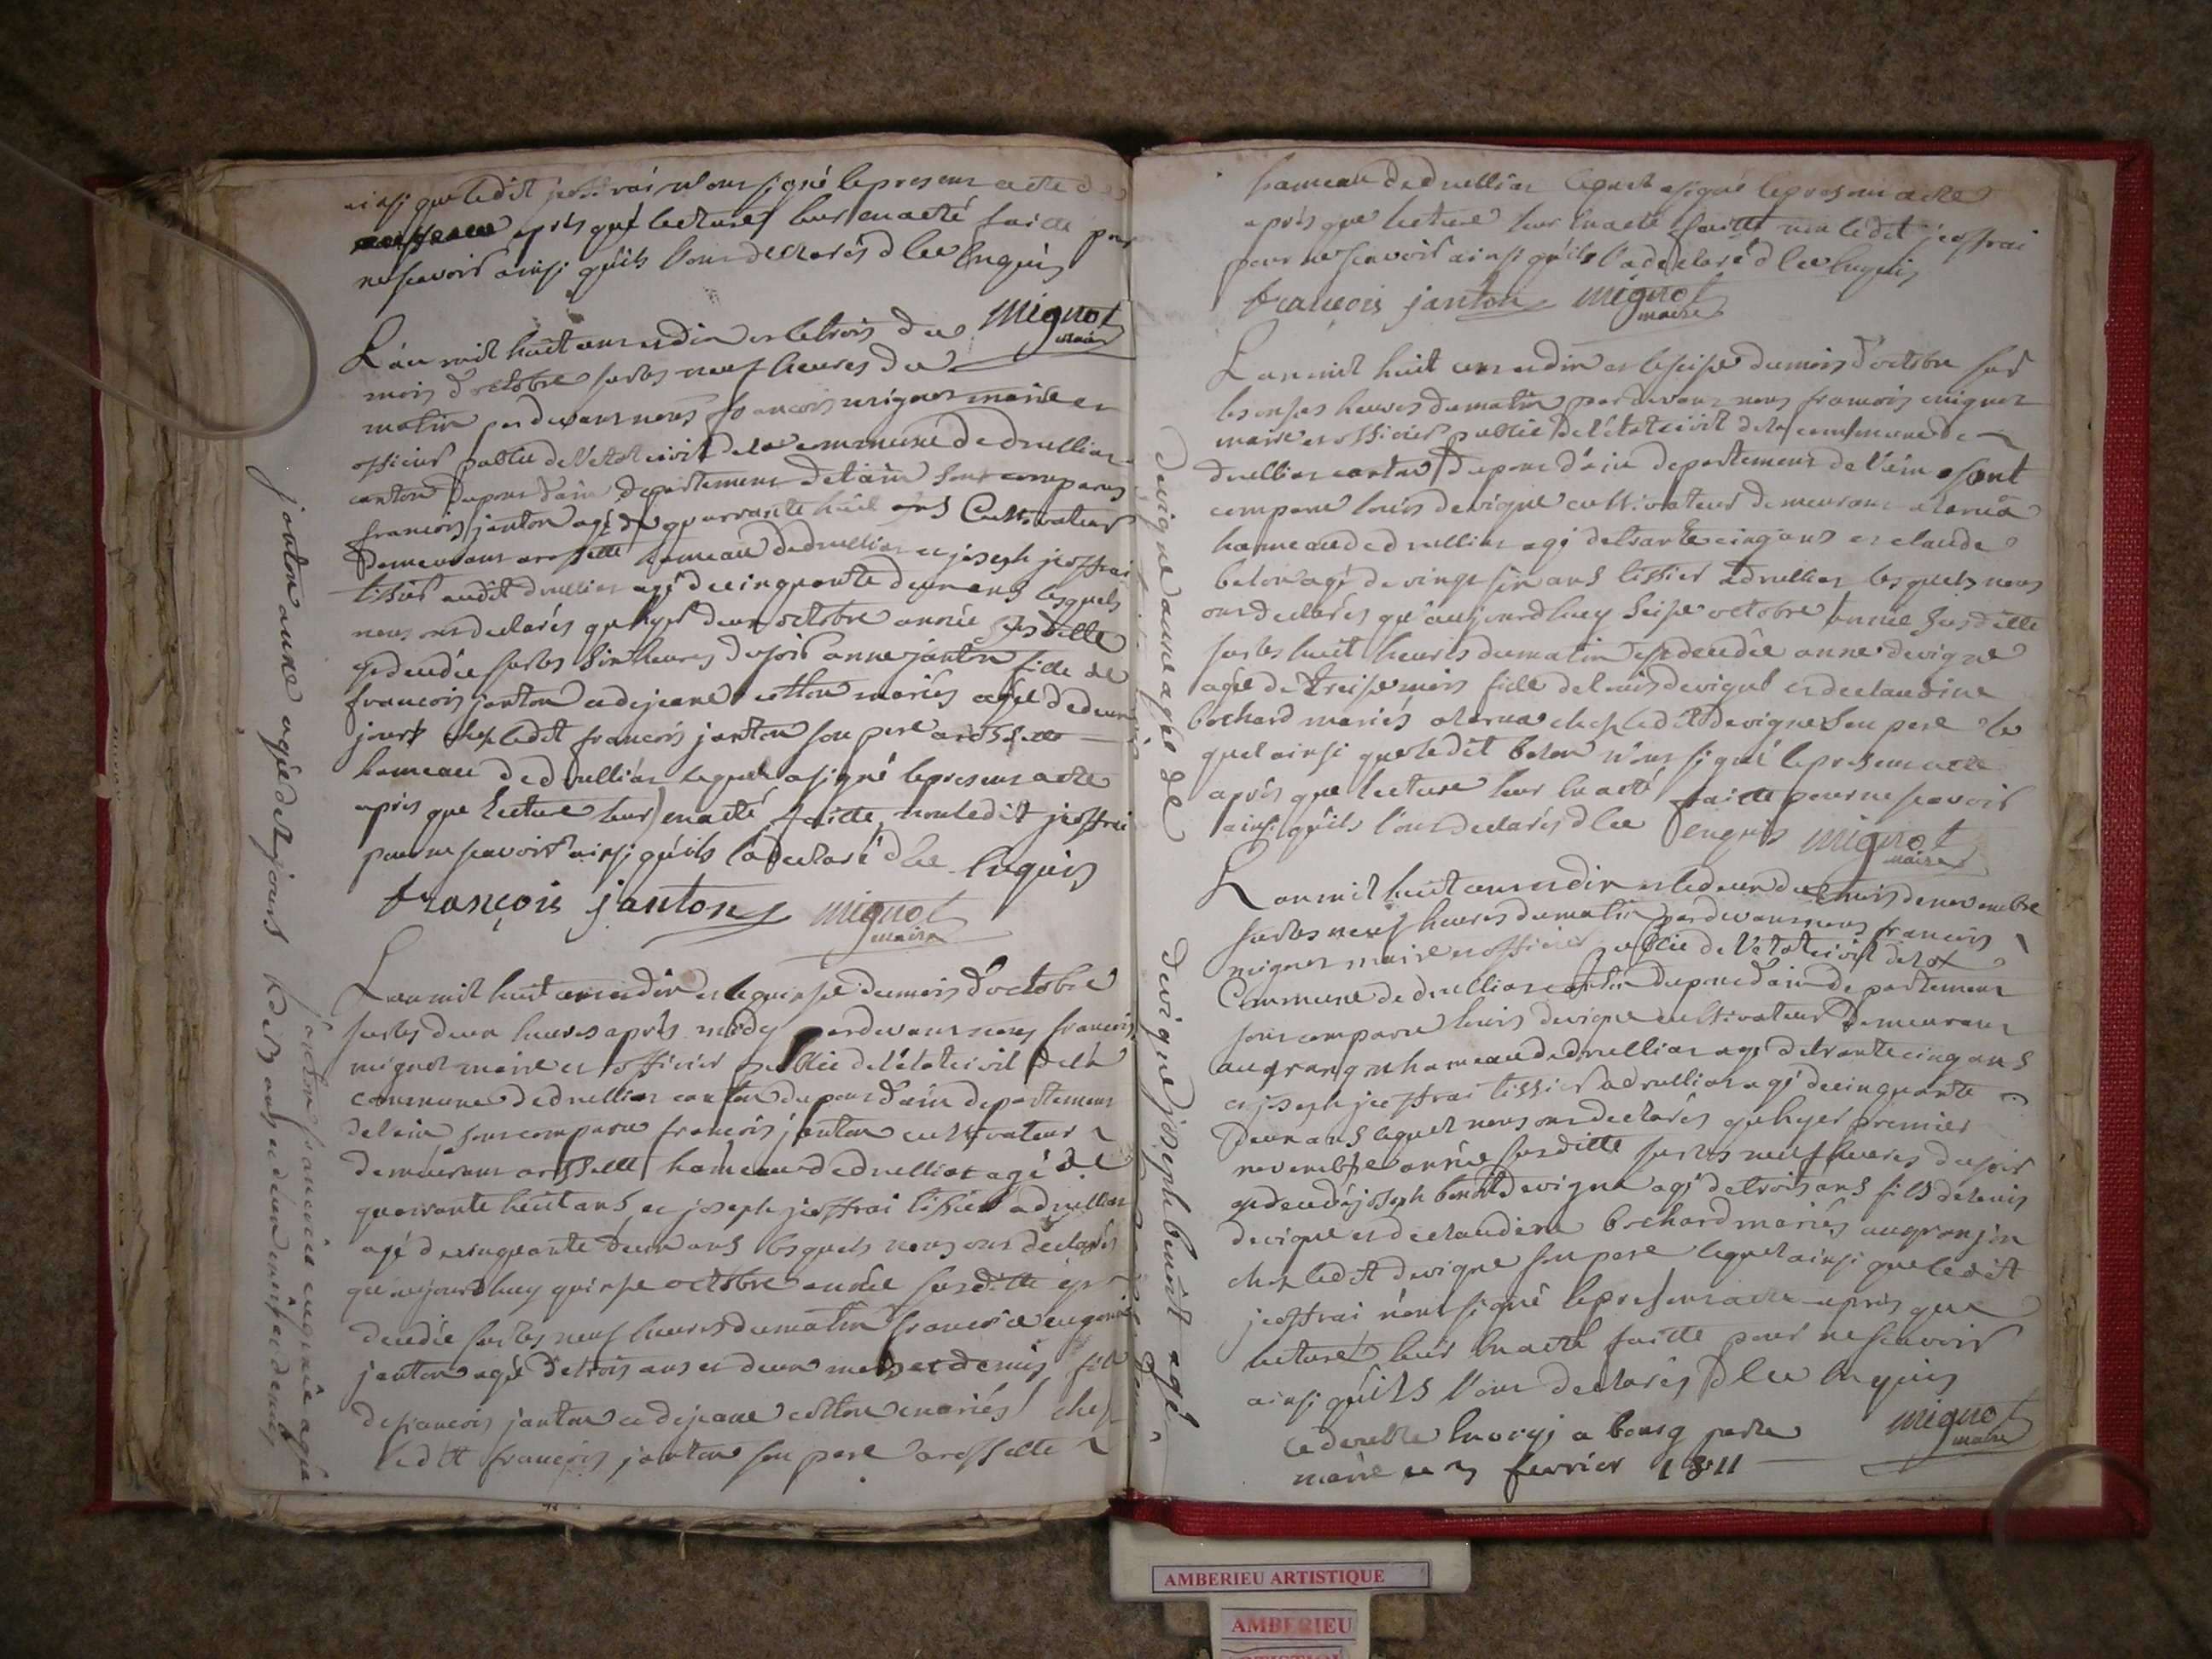 ainsi que ledit jeoffrai n'ont signé le present acte de
aprés que lecture leur en a eté faitte pour
ne scavoir ainsi quils l'ont declarés dlee enquis
Mignot
maire
L'an mil huit cent et dix et le trois du
mois d'octobre sur les neuf heures du
matin par devant nous francois mignot maire et
officier public de l'etat civil de la commune de druillias
canton du pont d'ain departement de l'ain sont comparus
francois janton agé de quarrante huit ans Cultivateur
demeurant a rossette hameau de druillias et joseph jeoffrai
tissier audit druillias agé de cinquante deux ans lesquels
nous ont declarés que hyer deux octobre année susditte
est decedée sur les six heures du soir anne janton fille de
francois janton et de jeane cotton mariés agée de deux
jours chez ledit francois janton son pere a rossette
hameau de druillias lequel a signé le present acte
apres que lecture leur en a eté faitte, non ledit jeoffrai
pour ne scavoir ainsi quils l'a declaré dlee enquis
françois janton mignot
maire
L'an mil huit cent et dix et le quinse du mois d'octobre
sur les deux heures aprés midy par devant nous francois
mignot maire et officier public de l'état civil de la
commune de druillias canton du pont d'ain departement
de l'ain sont comparu francois janton cultivateur
demeurant a rossette hameau de druillias agé de
quarrante huit ans et joseph jeoffrai tissier a druillias
agé de cinquante deux ans lesquels nous ont declarés
qu'aujourdhuy quinse octobre année susditte est
decedée sur les neuf heures du matin francoise eugenie
janton agée de trois ans et deux mois et demis fille
de francois janton et de jeane cotton mariés chez
ledit francois janton son pere a rossette
janton anne agée de 2 jours
janton francoise eugenie agée
de 3 ans et deux mois et demis
hameau de druillias lequel a signé le present acte
aprés que lecture leur en a eté faitte non ledit jeoffrai
pour ne scavoir ainsi quils l'a declaré dlee enquis
francois janton mignot
maire
L'an mil huit cent et dix et le seise du mois d'octobre sur
les onses heures du matin par devant nous francois mignot
maire et officier public de l'état civil de la commune de
druillias canton du pont d'ain departement de l'ain sont
comparu louis devigne cultivateur demeurant a larna
hameau de druillias agé de trante cinq ans et claude
belon agé de vingt six ans tissier a druillias lesquels nous
ont declarés qu'aujourdhuy seise octobre année susditte
sur les huit heures du matin est decedée anne devigne
agée de treise mois fille de louis devigne et de claudine
bochard mariés a larna chez ledit devigne son pere le
quel ainsi que ledit belon n'ont signé le present acte
aprés que lecture leur en a eté faitte pour ne scavoir
ainsi quils l'ont declarés dlee enquis mignot
maire
L'an mil huit cent et dix et le deux du mois de novembre
sur les neuf heures du matin par devant nous francois
mignot maire et officier public de l'état civil de la
Commune de druillias canton du pont d'ain departement
sont comparu louis devigne cultivateur demeurant
au granjon hameau de druillias agé de trante cinq ans
et joseph jeoffrai tissier a druillias agé de cinquante
deux ans lequel nous ont declarés que hyer premier
novembre année susditte sur les neuf heures du soir
est decedé joseph benoit devigne agé de trois ans fils de louis
devigne et de claudine bochard mariés au granjon
chez ledit devigne son pere lequel ainsi que ledit
jeoffrai n'ont signé le present acte aprés que
lecture leur en a eté faitte pour ne scavoir
ainsi quils l'ont declarés dlee enquis
mignot
maire
le double envoiyé a bourg par le
maire le 3 fevrier 1811
devigne anne agée de
devigne joseph benoit agé
AMBERIEU ARTISTIQUE
AMBERIEU
ARTISTIQUE